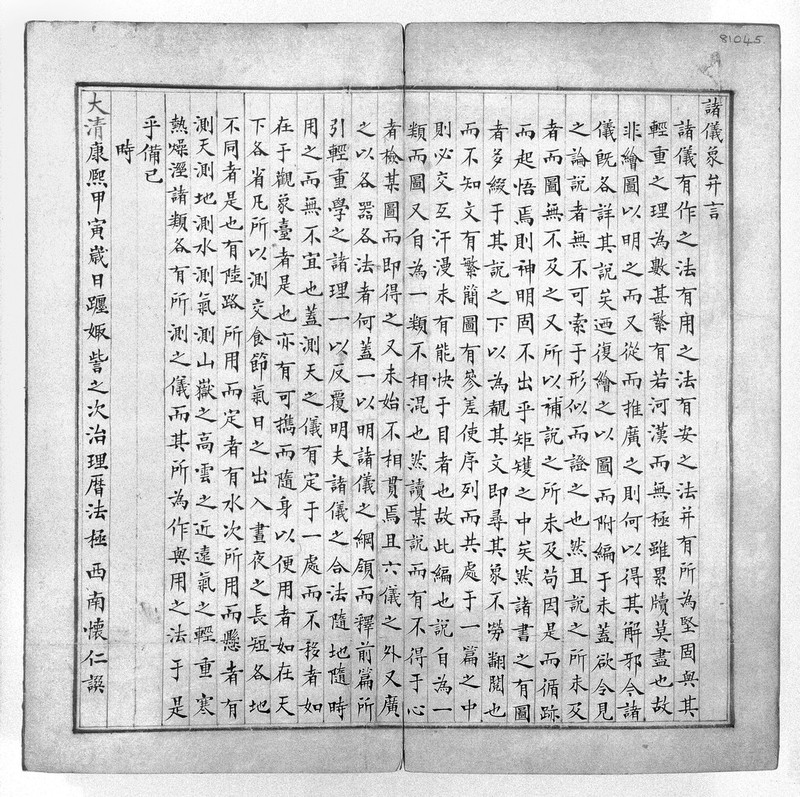 81045
諸儀象弁言
諸儀有作之法有用之法有安之法并有所為堅固與其
輕重之理為數甚繁有若河漢而無極雖累牘莫盡也故
非繪圖以明之而又從而推廣之則何以得其解邪今諸
儀既各詳其說矣迺復繪之以圖而附編于末蓋欲令見
之論說者無不可索于形似而證之也然且說之所未及
者而圖無不及之又所以補說之所未及苟因是而循跡
而起悟焉則神明固不出乎矩矱之中矣然諸書之有圖
者多綴于其說之下以為覩其文即尋其象不勞翻閱也
而不知文有繁簡圖有參差使序列而共處于一篇之中
則必交互汗漫未有能快于目者也故此編也說自為一
類而圖又自為一類不相混也然讀某說而有不得于心
者檢某圖而即得之又未始不相貫焉且六儀之外又廣
之以各器各法者何蓋一以明諸儀之綱領而釋前篇所
引輕重學之諸理一以反覆明夫諸儀之合法隨地隨時
用之而無不宜也蓋測天之儀有定于一處而不移者如
在于觀象臺者是也亦有可攜而隨身以便用者如在天
下各省凡所以測交食節氣日之出入晝夜之長短各地
不同者是也有陸路所用而定者有水次所用而懸者有
測天測地測水測氣測山嶽之高雲之近遠氣之輕重寒
熱燥溼諸類各有所測之儀而其所為作與用之法于是
乎備已
時
大清康熙甲寅歲日躔娵訾之次治理曆法極西南懷仁譔